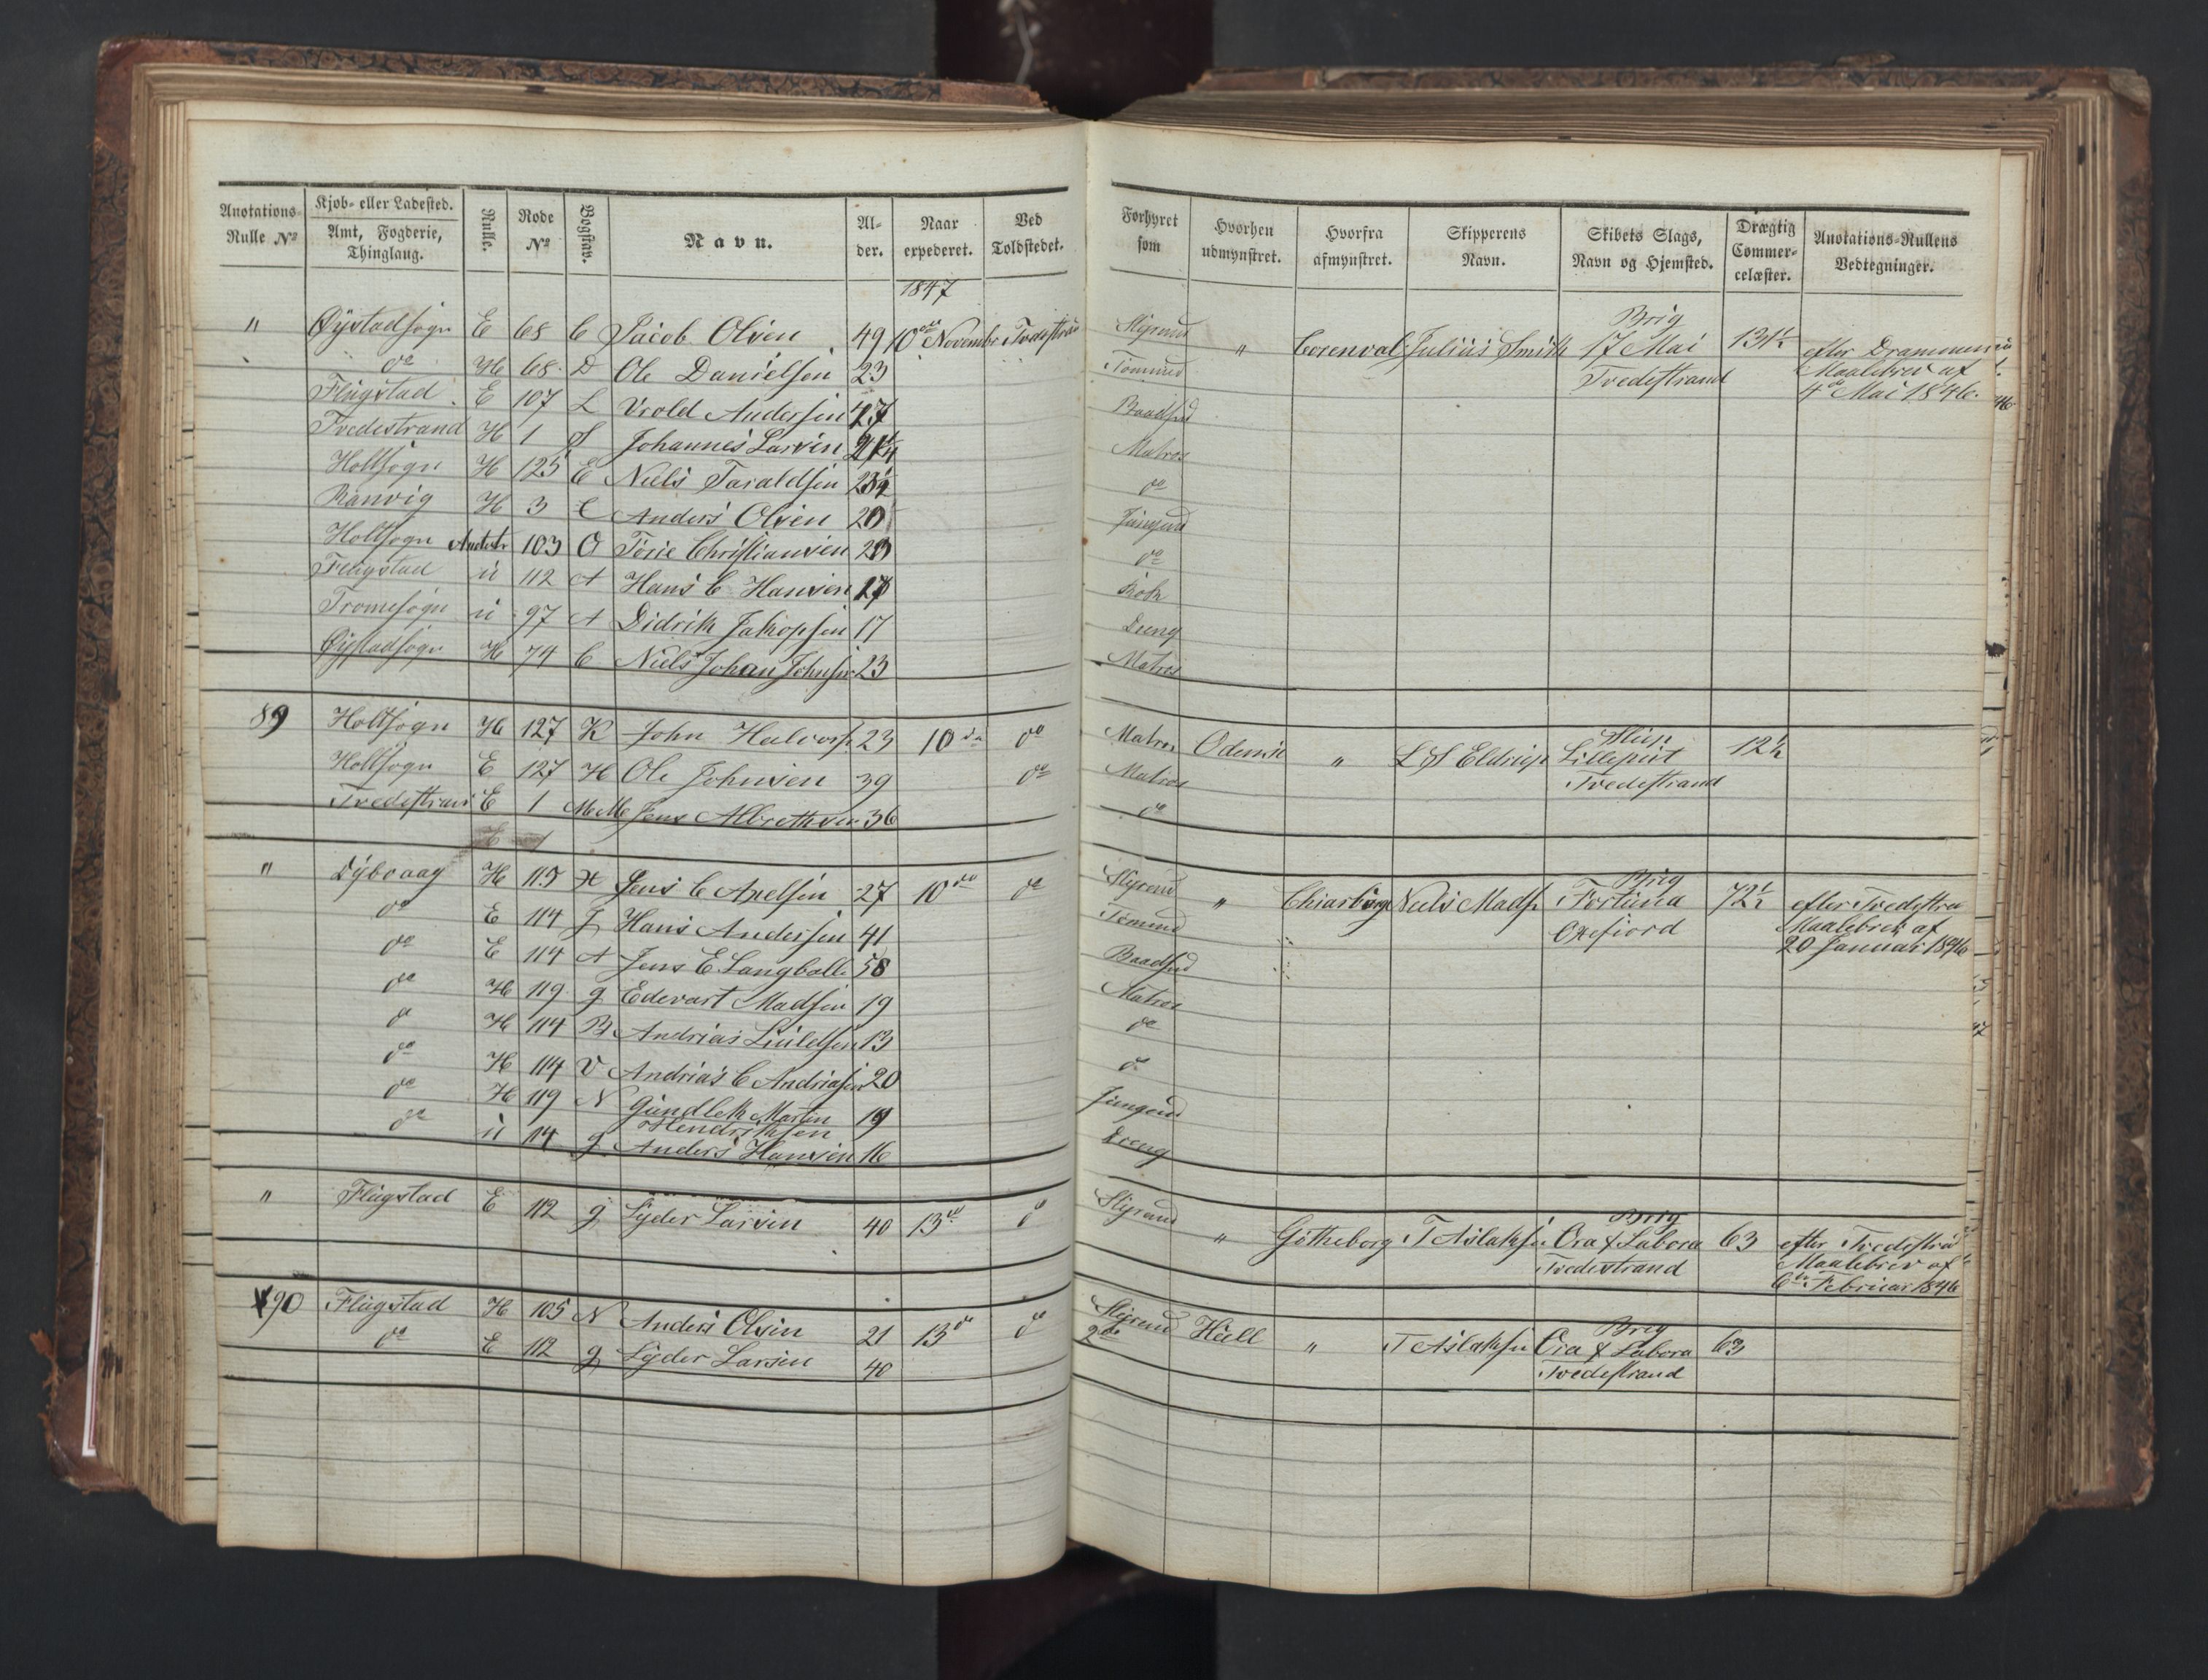 Anotations-Rulle No Kjøb- eller Ladested. Amt, Fogderie, Thinglaug. Rulle. Rode No Bogstav. Navn. Alder. Naar expederet. Ved Toldstedet.
Forhyret som Hvorhen udmynstret. Hvorfra afmynstret. Skipperens Navn. Skibets Slags, Navn og Hjemsted. Drægtig Commercelæster. Anotations-Rullens Vedtegninger.
1847
" Øÿstadsogn E 68 C Jacob Olsen 49 10de November Styrmd " Julius Smith Brig 17 Mai Tvedestrand 131½ efter Drammens Maalebrev af 4de Mai 1846.
do H 68 D Ole Danielsen 23 Tømmd
Flugstad E 107 L Vrold Andersen Baadsmd
Tvedestrand H 1 Johannes Larsen Matros
Holtsogn H 125 E Niels Taraldsen Matros do
Ranvig H 3 C Anders Olsen 20 Jungmd
Holtsogn 103 O Terje Christiansen do
Flugstad ü 112 A Hans C Hansen 17 Kok
Tromøsogn ü 97 A Didrik Jakopsen 17 Dreng
Øÿstadsogn H 74 C Niels Johan Johnsen 23 Matros
89 Holtsogn H 127 K John Halvors. 23 10de do Matros Odense " L S Eldrup Slup Lilleput Tvedestrand 12½
Holtsogn E 127 H Ole Johnsen 39 do Matros
Tvedestrand E 1 Jens Albrethsen 36 do
" Dÿbvaag H 115 Jens C Axelsen 27 10de do Styrmd " Niels Mads. Brig Fortuna Oxefiord 72½ efter Tvedestra Maalebrev af 20 Januar 1846
do E 114 J Hans Andersen 41 Tømmd
do E 114 A Jens E. Langballe 58 Baadsmd
do H 119 g Edevart Madsen 19 Matros
do H 114 B Andrias 13 do
do H 114 V Andrias C Andriasen 20 do
do H 119 N Gundlek Martin Hendriksen 19 Jungmd
do ü 114 g Anders Hansen 16 Dreng
" Flugstad E 112 g Lÿder Larsen 40 13de do Styrmd " Gøtheborg T Aslaksen Brig Ora & Labora Tvedestrand 63 efter Tvedestrand Maalebrev af 6te Februar 1846
90 Flugstad H 105 N Anders Olsen 21 13de do Styrmd Hull " T Aslaksen Brig Ora & Labora Tvedestrand 63
do E 112 g Lÿder Larsen 40 2de